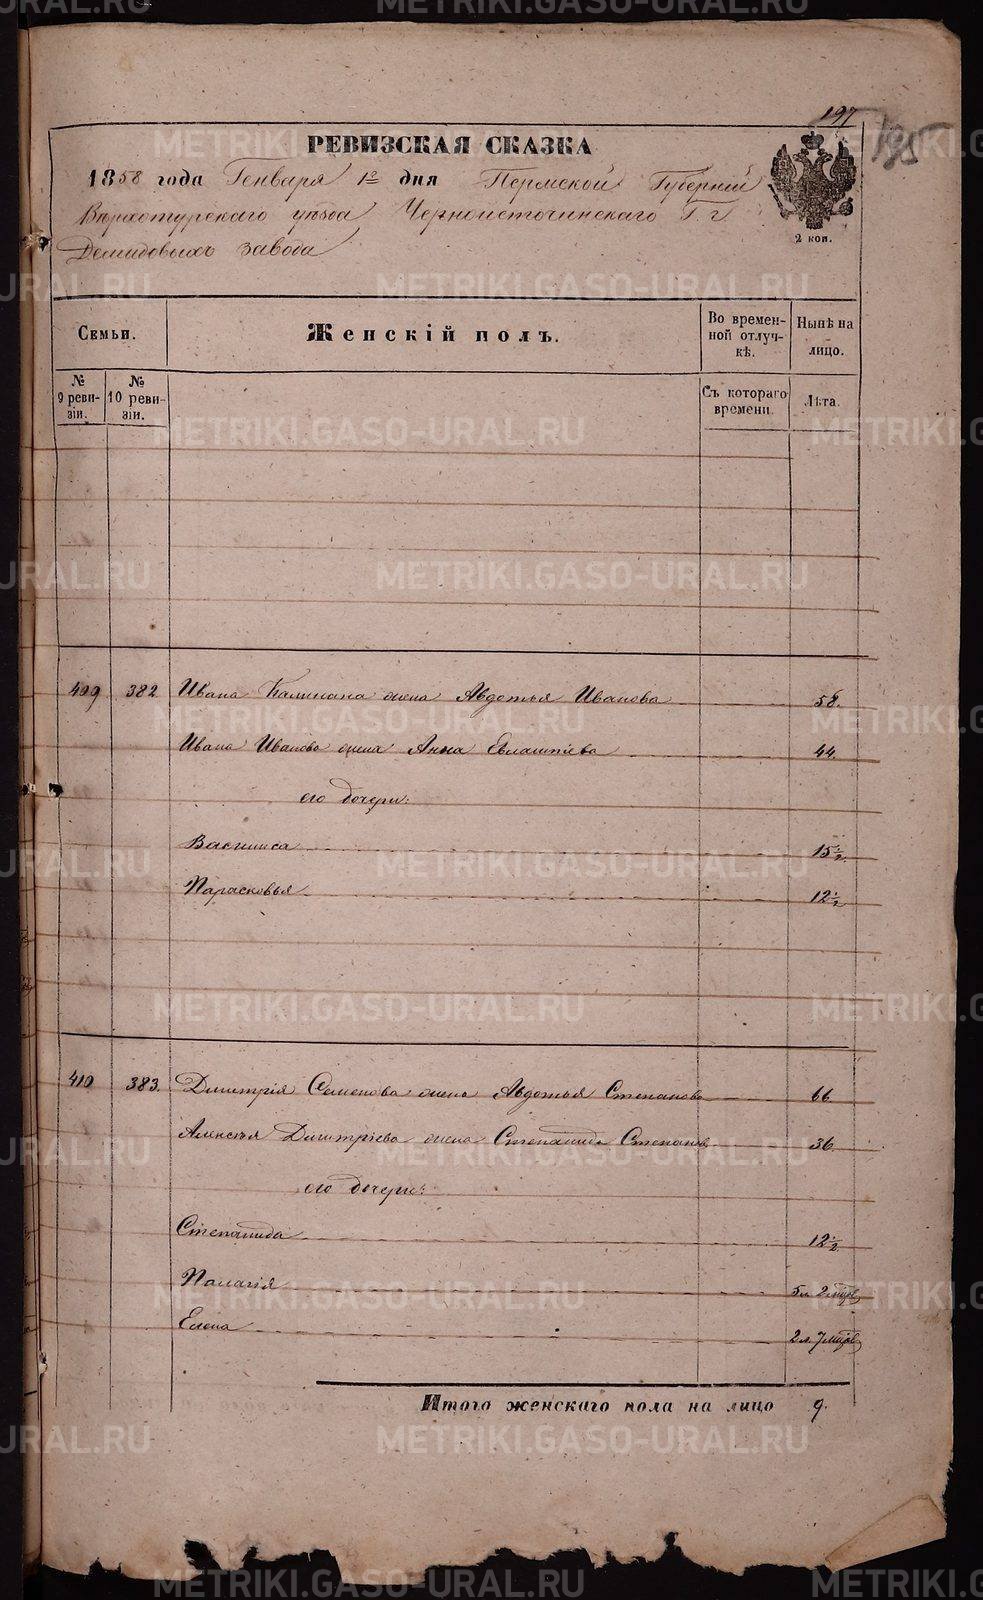 197
195
РЕВИЗСКАЯ СКАЗКА
1858 года Генваря 12 дня Пермской Губерніи
Верхотурскаго уѣзда Черноисточинскаго Г. г
Демидовыхъ завода
2 коп.
Семьи.
Женскій полъ.
Во времен-
ной отлуч-
кѣ.
Нынѣ на
лицо.
№
9 реви-
зіи.
№
10 реви-
зіи.
Съ котораго
времени.
Лѣта.
409 382 Ивана Калинина жена Авдотья Иванова 58.
Ивана Иванова жена Анна 44.
его дочери:
Васлиса 15 1/2.
Парасковья 12 1/2
410 383. Дмитрія Семенова жена Авдотья Степанова 66.
Алексѣя Дмитріева жена Степанида Степанов 36.
его дочери:
Степанида 12 1/2
Палагія 5 л 2 мцов
Елена 2 л. 7 мцов
Итого женскаго пола на лицо 9.
METRIKI.GASO-URAL.RU